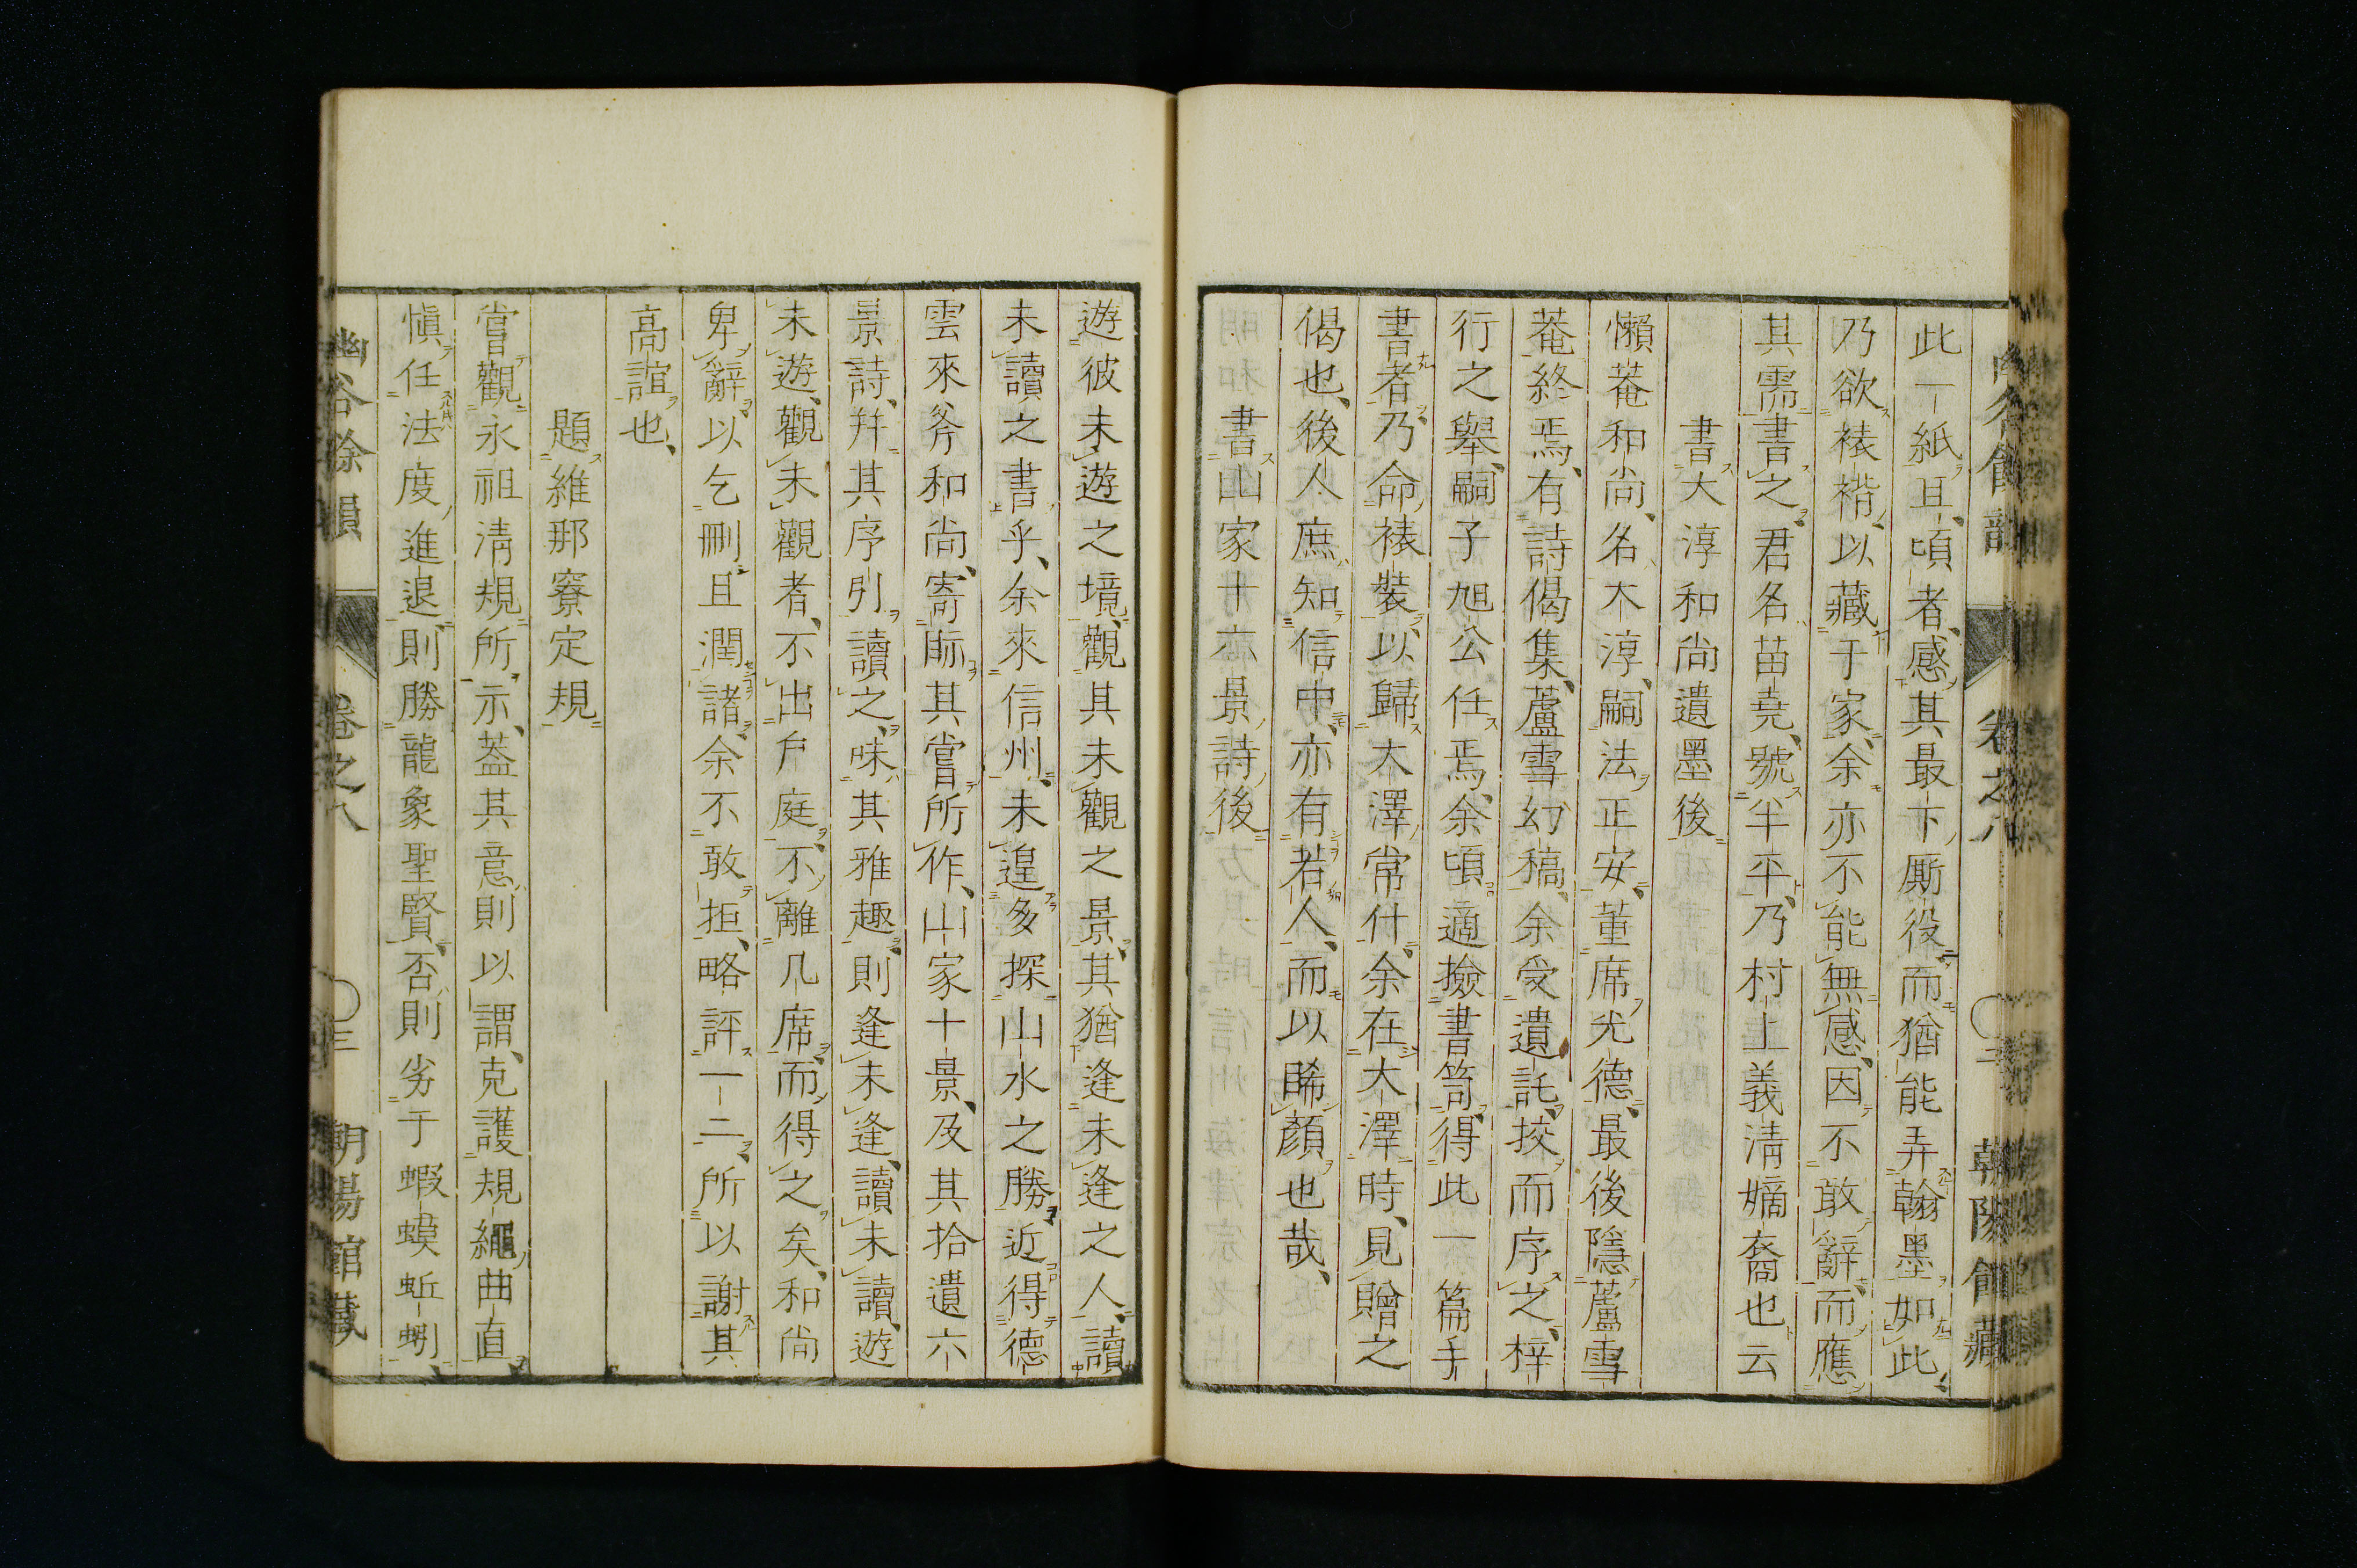 此一紙且頃者、感其最下厮役而猶能弄翰墨如此、
乃欲裱褙以藏于家、余亦不能無感、因不敢辭而應
其需書之、君名苗堯、號半平、乃村上義清嫡裔也云
書大淳和尚遺墨後
懶菴和尚、名木淳、嗣法正安、董席光德、最後隱蘆雪
菴終焉、有詩偈集、蘆雪幻稿、余受遺託、挍而序之、梓
行之舉、嗣子旭公任焉、余頃適撿書笥、得此一篇手
書者、乃命裱裝、以歸大澤常什、余在大澤時、見贈之
偈也、後人庶知信中、亦有若人、而以睎顏也哉、
書山家十六景詩後
遊彼未遊之境、觀其未觀之景、其猶逢未逢之人、讀
未讀之書乎、余來信州、未遑多探山水之勝、近得德
雲來斧和尚、寄眎其嘗所作、山家十景、及其拾遺六
景詩、幷其序引讀之、味其雅趣、則逢未逢、讀未讀、遊
未遊、觀未觀者、不出戶庭、不離几席、而得之矣、和尚
卑辭以乞刪且潤諸、余不敢拒、略評一二、所以謝其
高誼也、
題維那寮定規
嘗觀永祖清規所示、蓋其意則以謂、克護規繩曲直
愼任法度進退、則勝龍象聖賢、否則劣于蝦蟆蚯蚓、
幽谷餘韻 卷之八 〇三 朝陽館藏